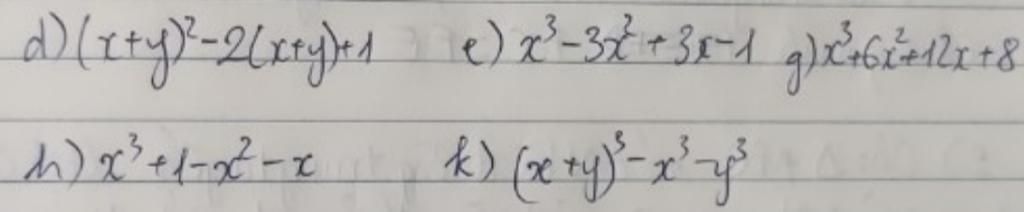 d) (x+y)²-2(x+y)+1 e) x³-3x²+3x-1 g) x³+6x²+12x+8
h) x³+1-x²-x k) (x+y)³-x³-y³